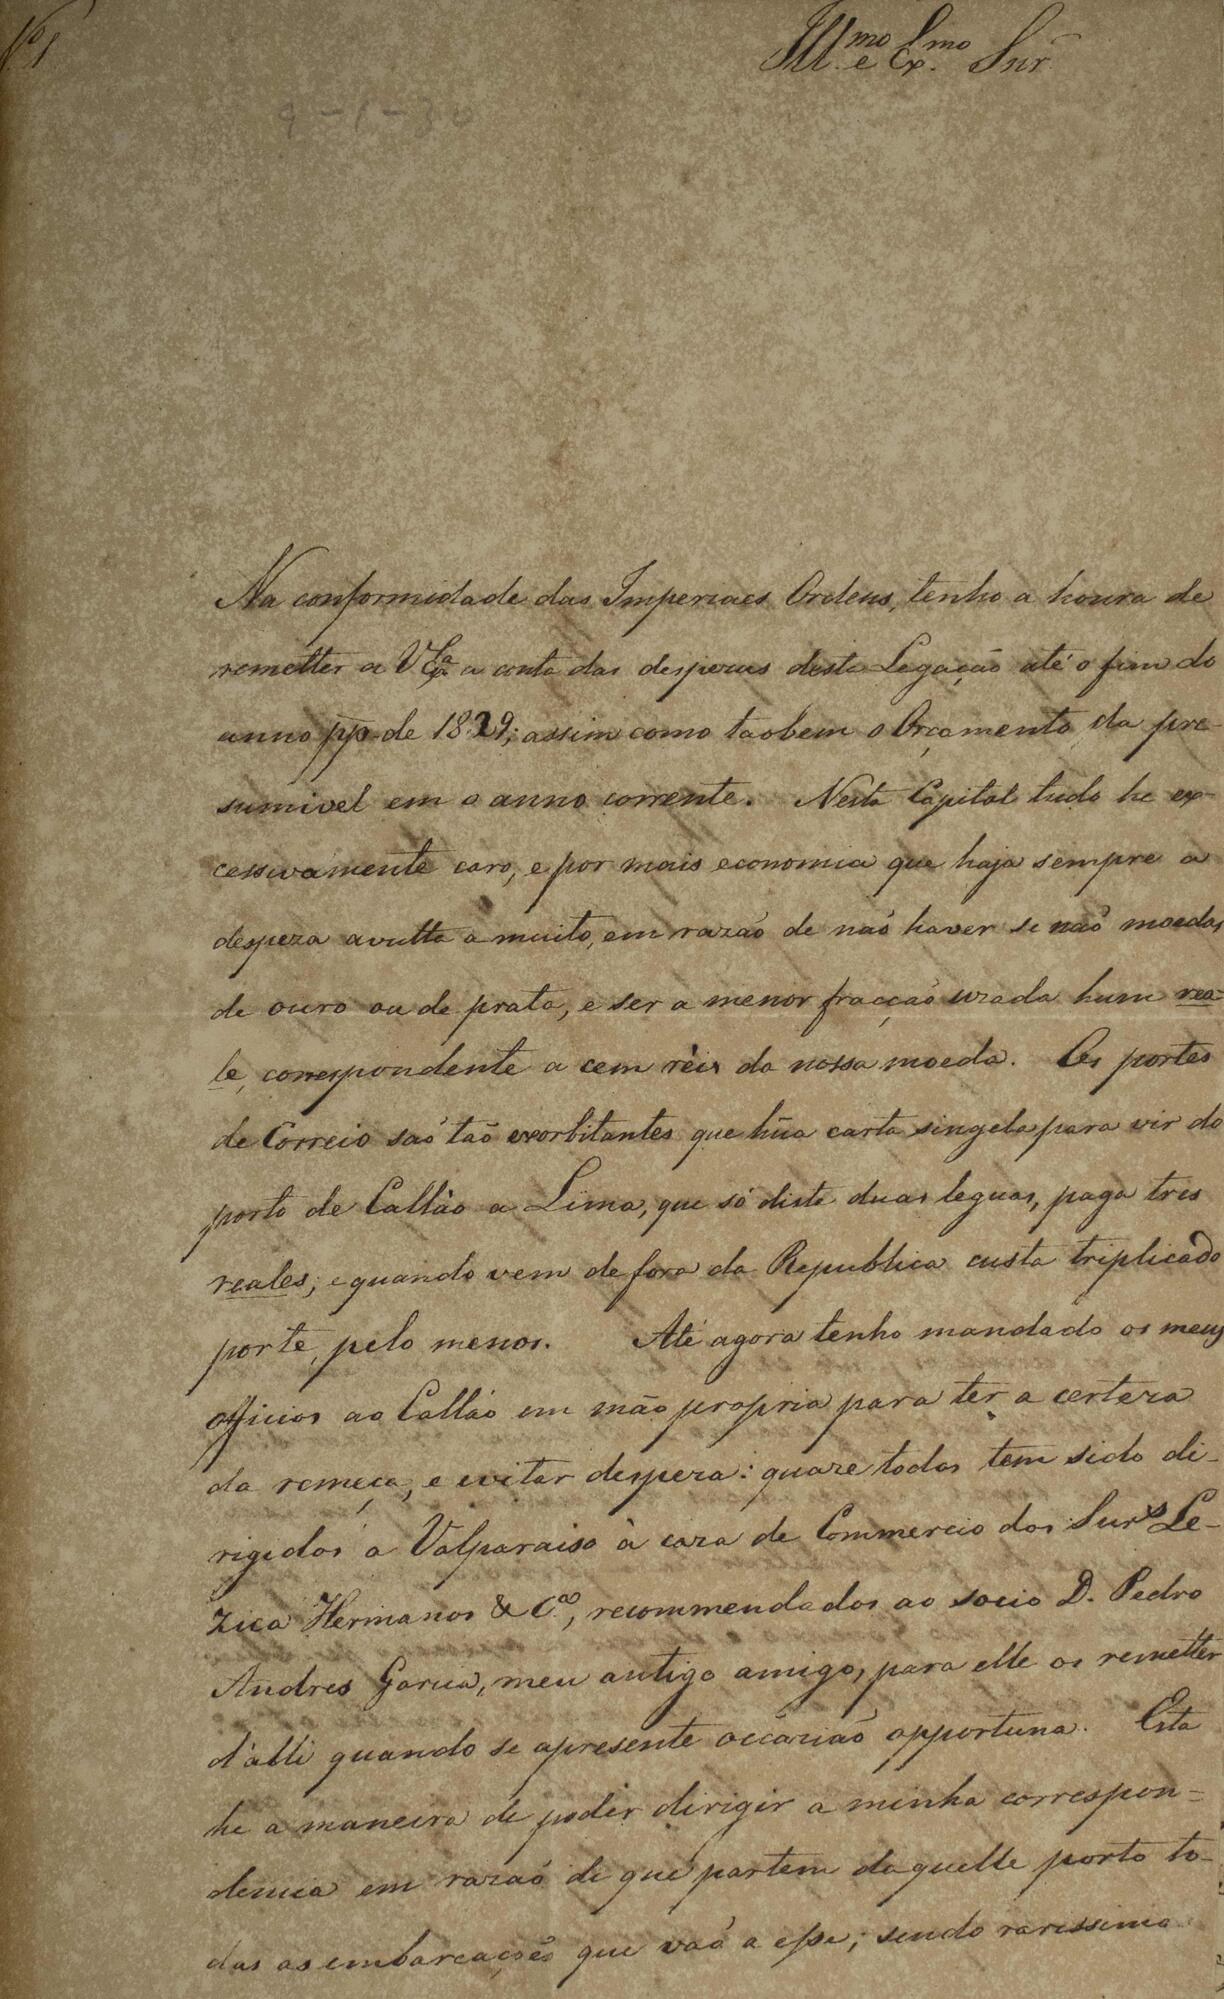 Nº 1
Ill.mo e Ex.mo Snr
9-1-30
Na conformidade das Imperiaes Ordens, tenho a honra de
remetter a V Exª a conta das despezas desta Legação até o fim do
anno pp. de 1829; assim como taobem o Orçamento da pre-
sumivel em o anno corrente. Nesta Capital tudo he ex-
cessivamente caro, e por mais economia que haja sempre a
despeza avulta a muito, em razaõ de naõ haver se naõ moedas
de ouro ou de prata, e ser a menor fracçaõ uzada hum rea-
le, correspondente a cem rèis da nossa moeda. Os portes
de Correio saõ taõ exorbitantes que hũa carta singela para vir do
porto de Callào a Lima, que só dista duas leguas, paga tres
reales; e quando vem de fora da Republica custa triplicado
porte, pelo menos. Até agora tenho mandado os meus
officios ao Callào em mão propria para ter a certeza
da remeça, e evitar despeza: quaze todos tem sido di-
rigidos a Valparaiso à caza de Commercio dos Snr.s Le-
zica Hermanos & C.ª, recommendados ao socio D. Pedro
Andres Garcia, meu antigo amigo, para elle os remetter
d'alli quando se apresente occaziaõ opportuna. Esta
he a maneira de poder dirigir a minha correspon-
dencia em razaõ de que partem daquelle porto to-
das as embarcaçoẽs que vaõ a esse; sendo rarissima